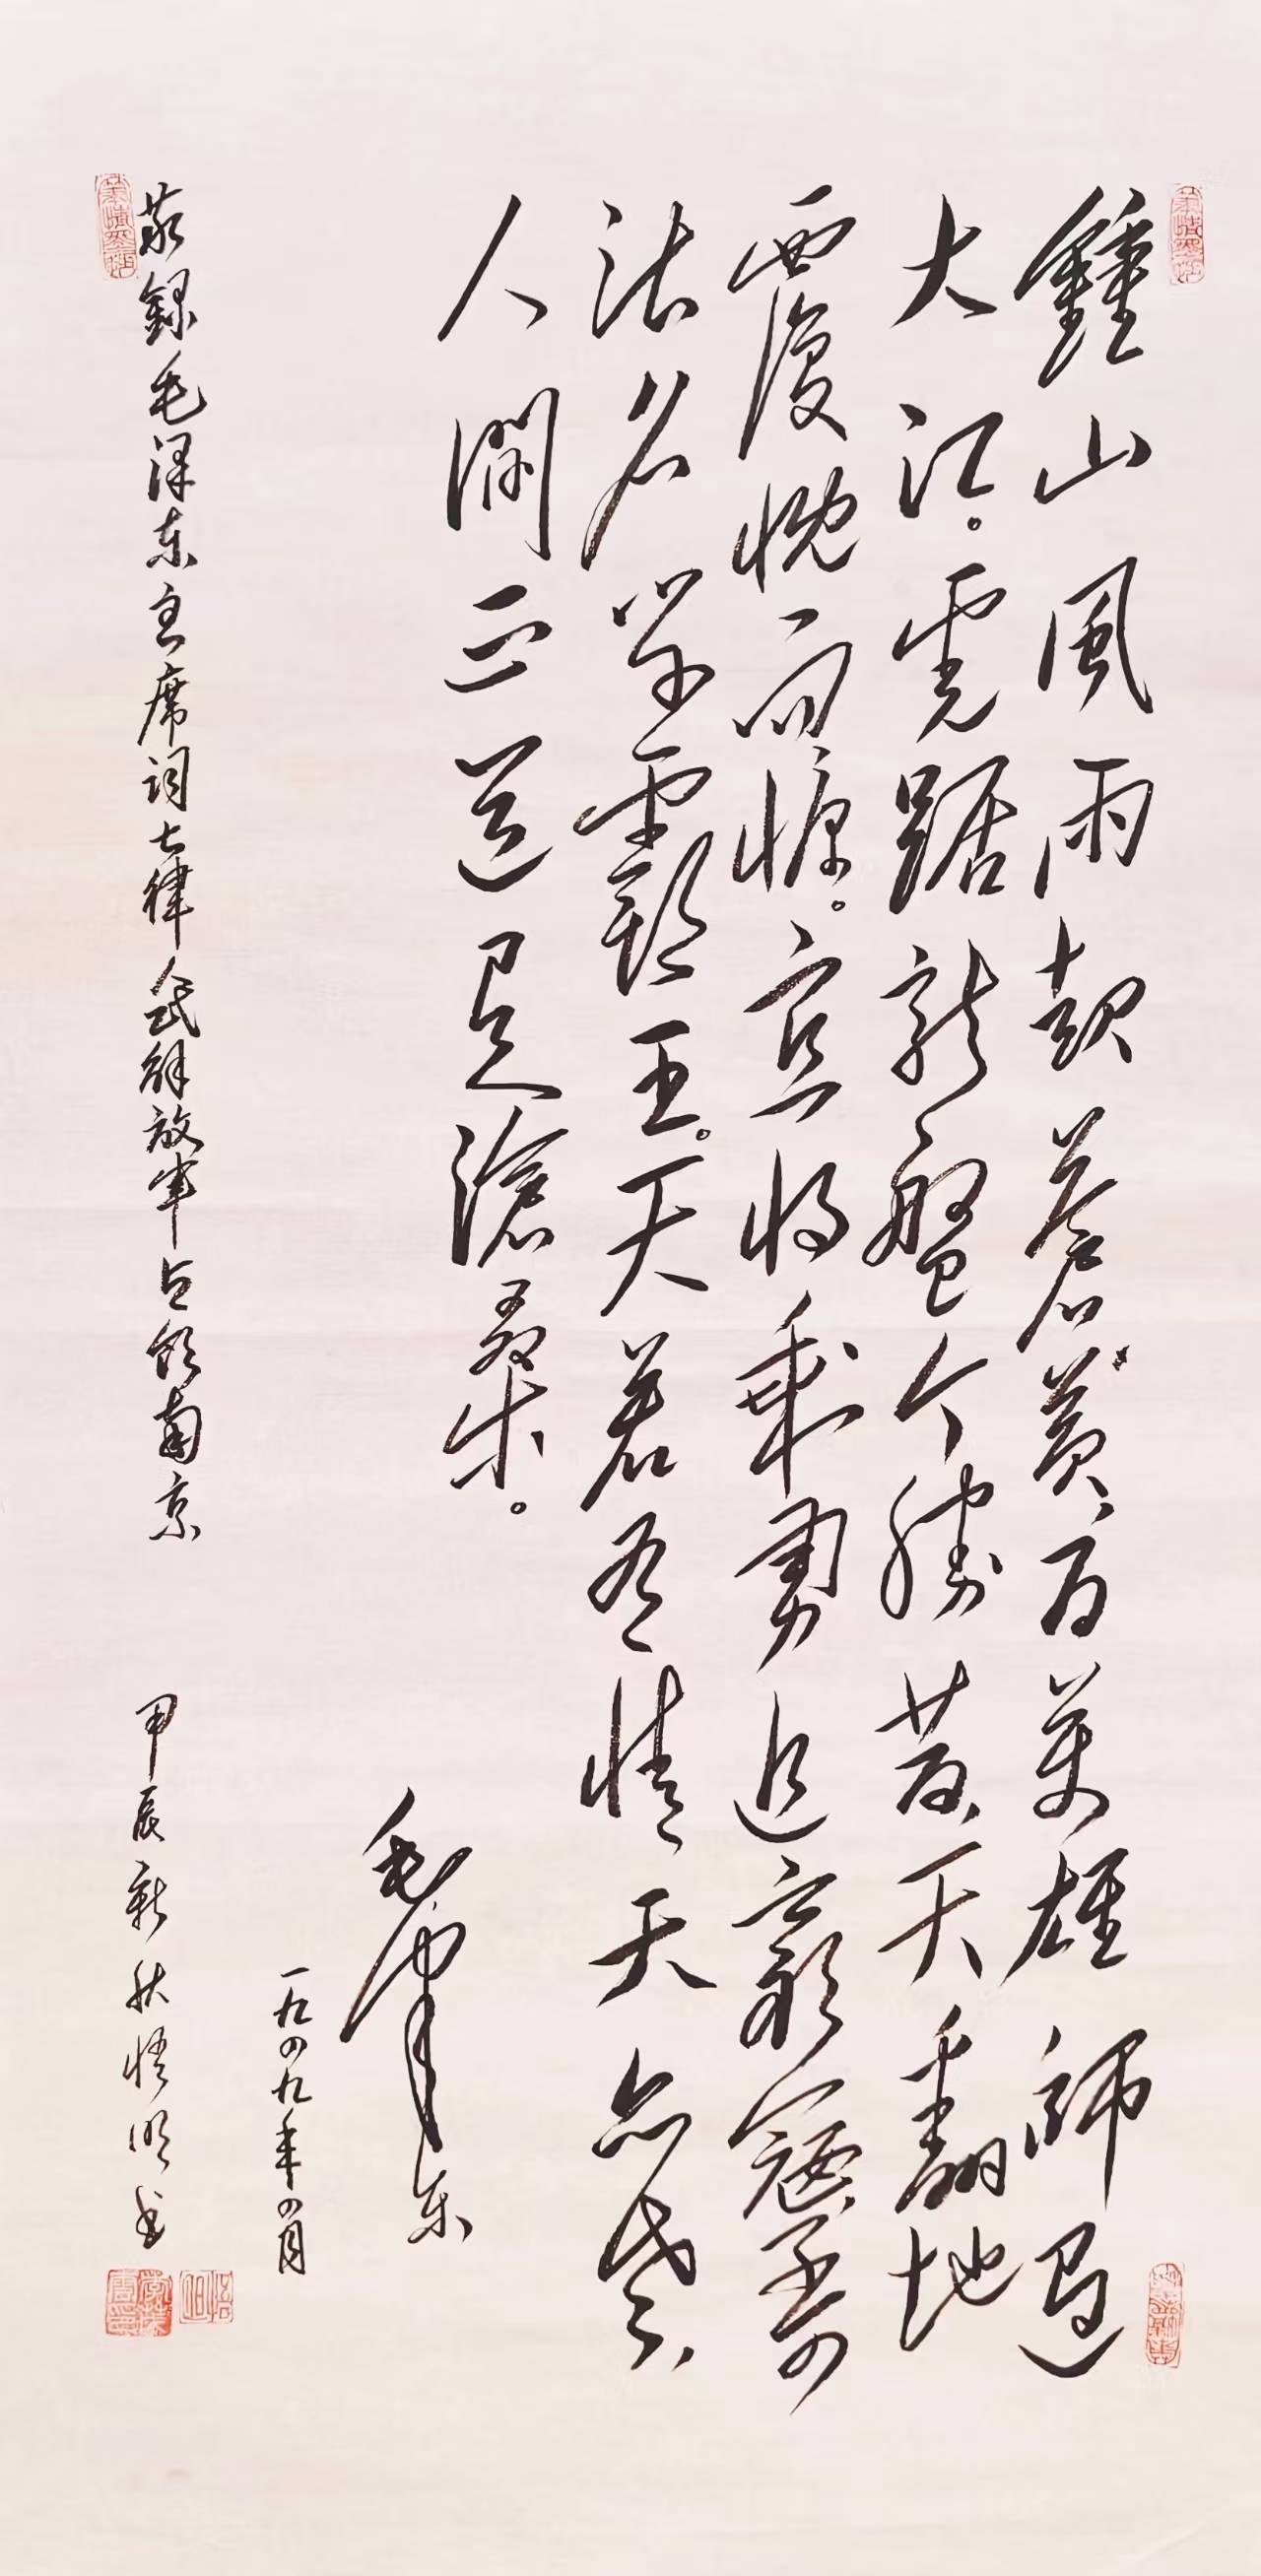 鍾山風雨起蒼黃、百萬雄師過
大江。虎踞龍盤今勝昔、天翻地
覆慨而慷。宜將剩勇追窮寇、不可
沽名學霸王。天若有情天亦老、
人間正道是滄桑。
毛澤东
一九四九年四月
敬録毛泽东主席词七律人民解放军占领南京
甲辰新秋悟明书